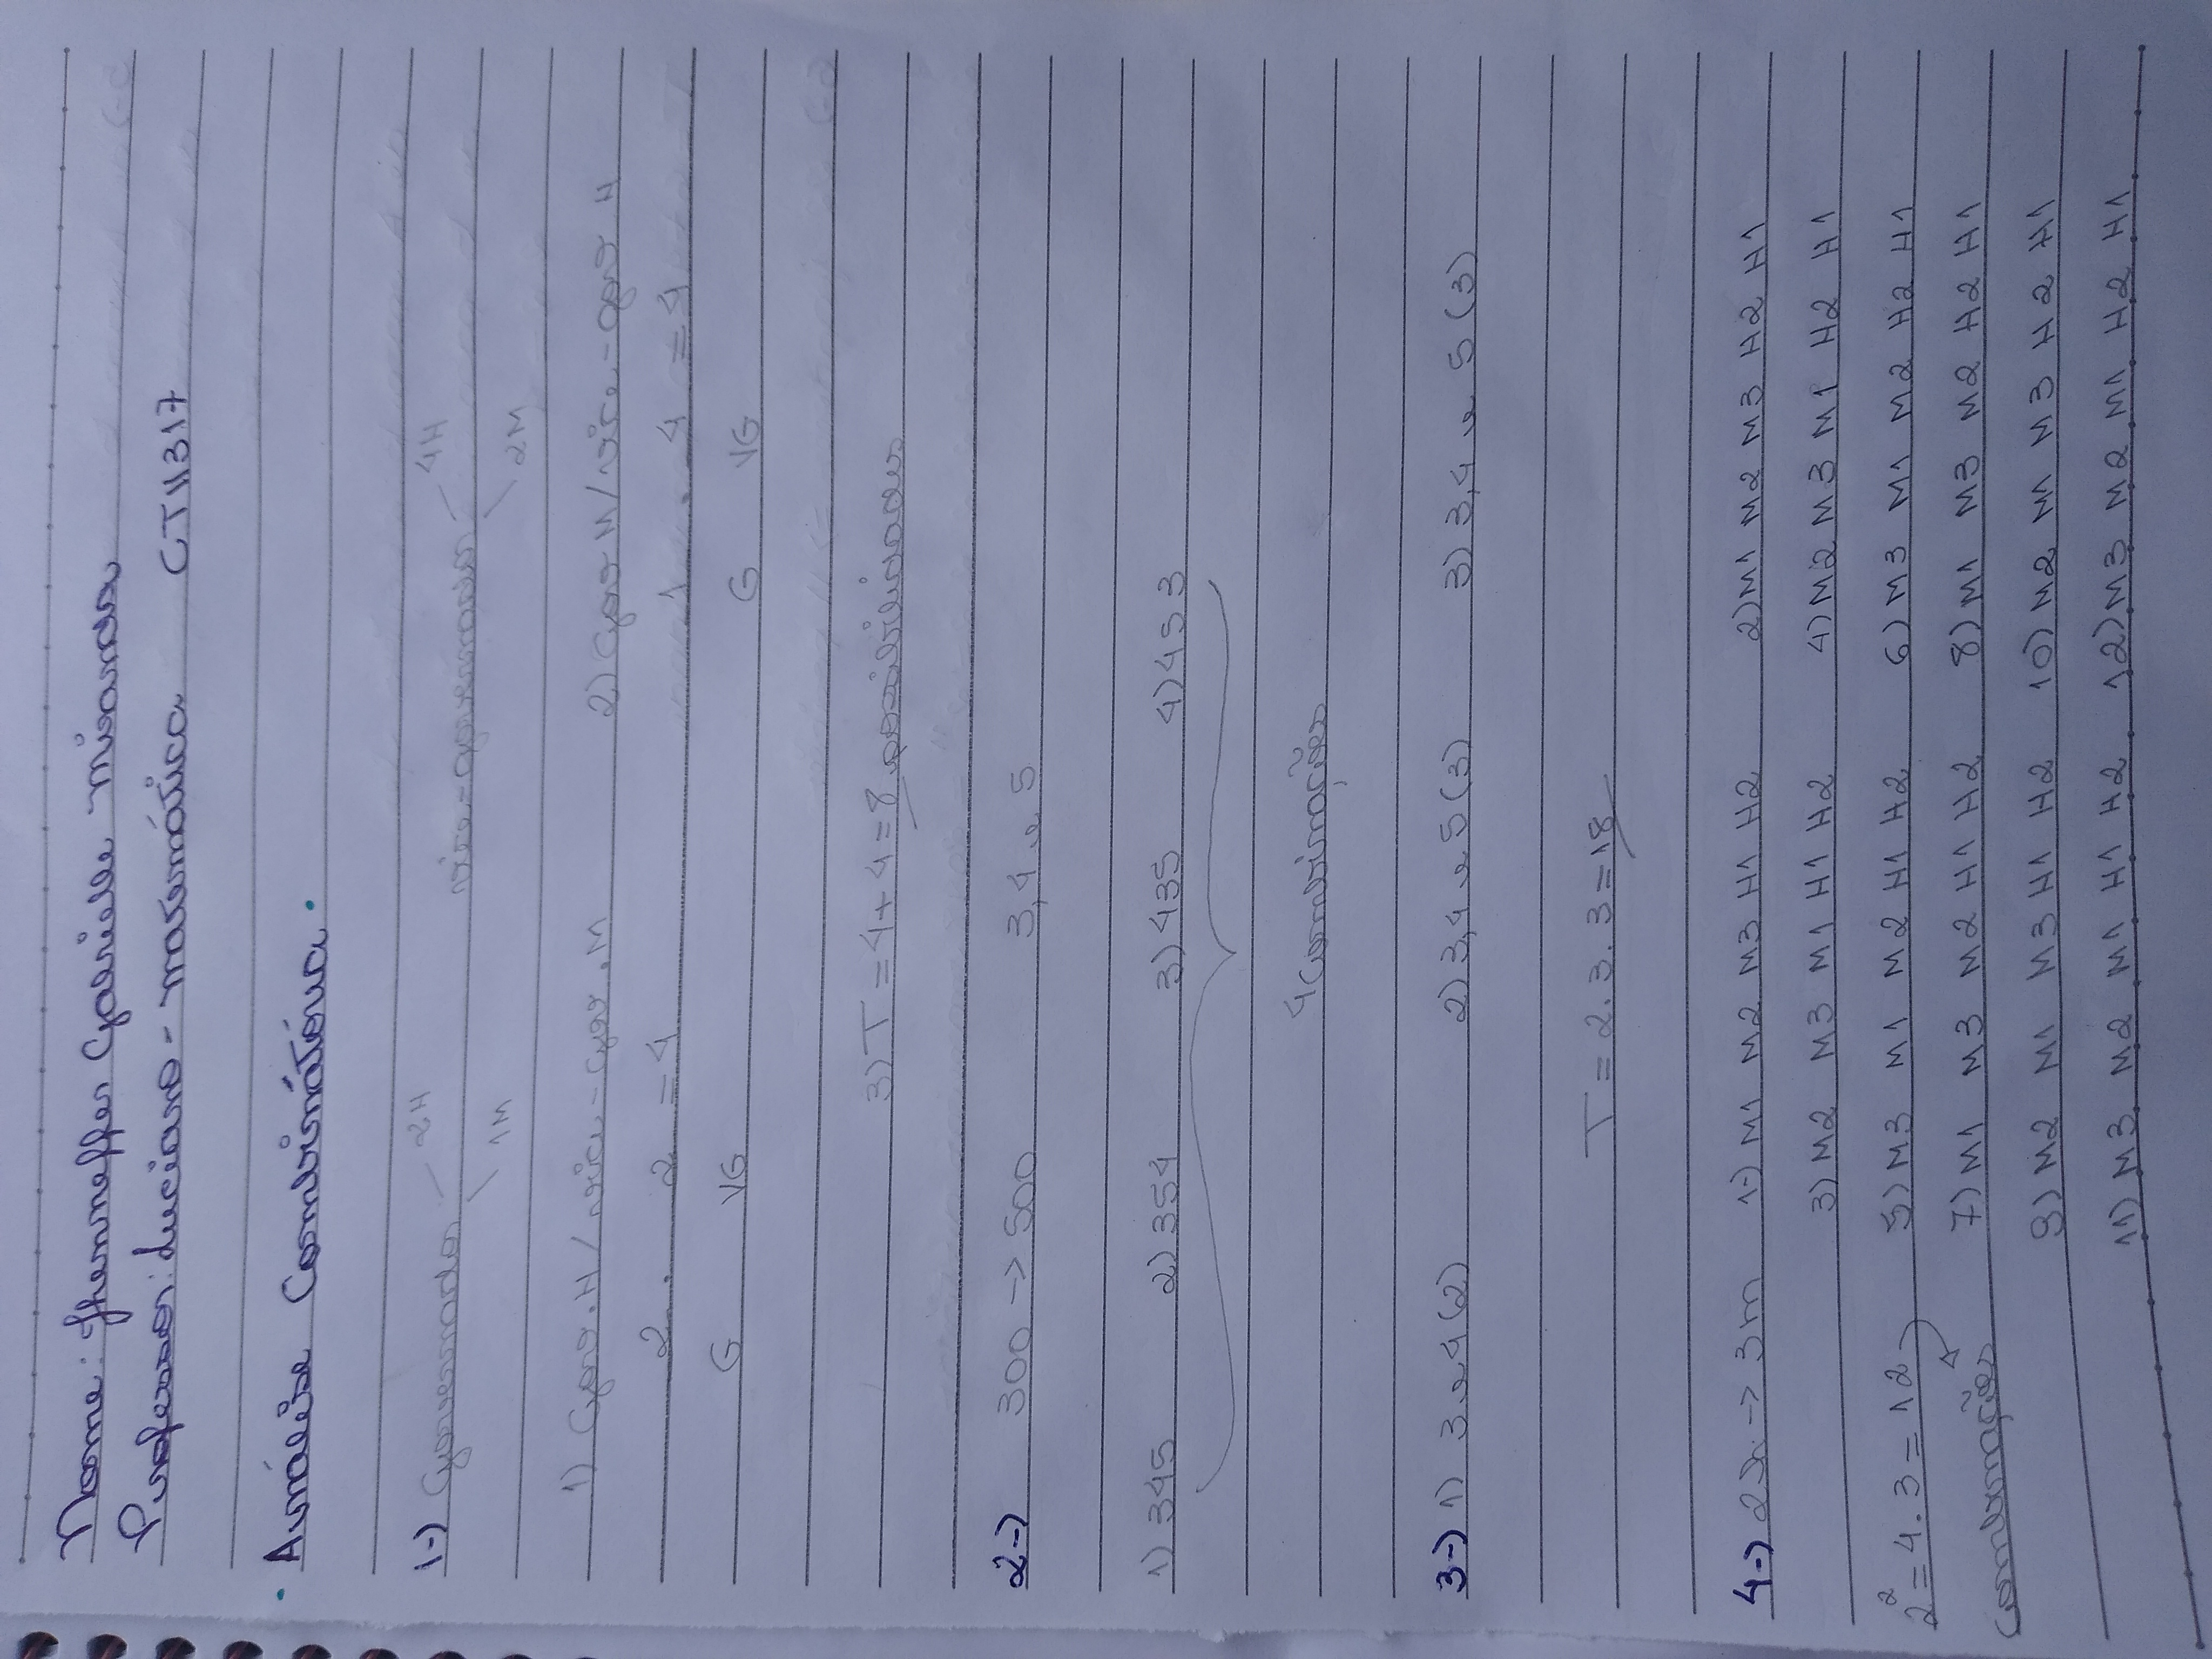 Nome: Jhenneffer Gabrielle Miranda
Professor: Luciano - matemática CTII317
· Análise Combinátória ·
1-) Governador 2H 1M vice-governador 4H 2M
1) Gov. H / vice-gov. M 2) Gov M / vice-gov H
2 . 2 = 4 1 . 4 = 4
G VG G VG
3) T = 4 + 4 = 8 possibilidades
2-) 300 -> 500 3, 4 e 5
1) 345 2) 354 3) 435 4) 453
4 combinações
3-) 1) 3 e 4 (2) 2) 3, 4 e 5 (3) 3) 3, 4 e 5 (3)
T = 2. 3. 3 = 18
4-) 2h -> 3m 1-) M1 M2 M3 H1 H2 2) M1 M2 M3 H2 H1
3) M2 M3 M1 H1 H2 4) M2 M3 M1 H2 H1
2² = 4. 3 = 12 5) M3 M1 M2 H1 H2 6) M3 M1 M2 H2 H1
combinações 7) M1 M3 M2 H1 H2 8) M1 M3 M2 H2 H1
9) M2 M1 M3 H1 H2 10) M2 M1 M3 H2 H1
11) M3 M2 M1 H1 H2 12) M3 M2 M1 H2 H1